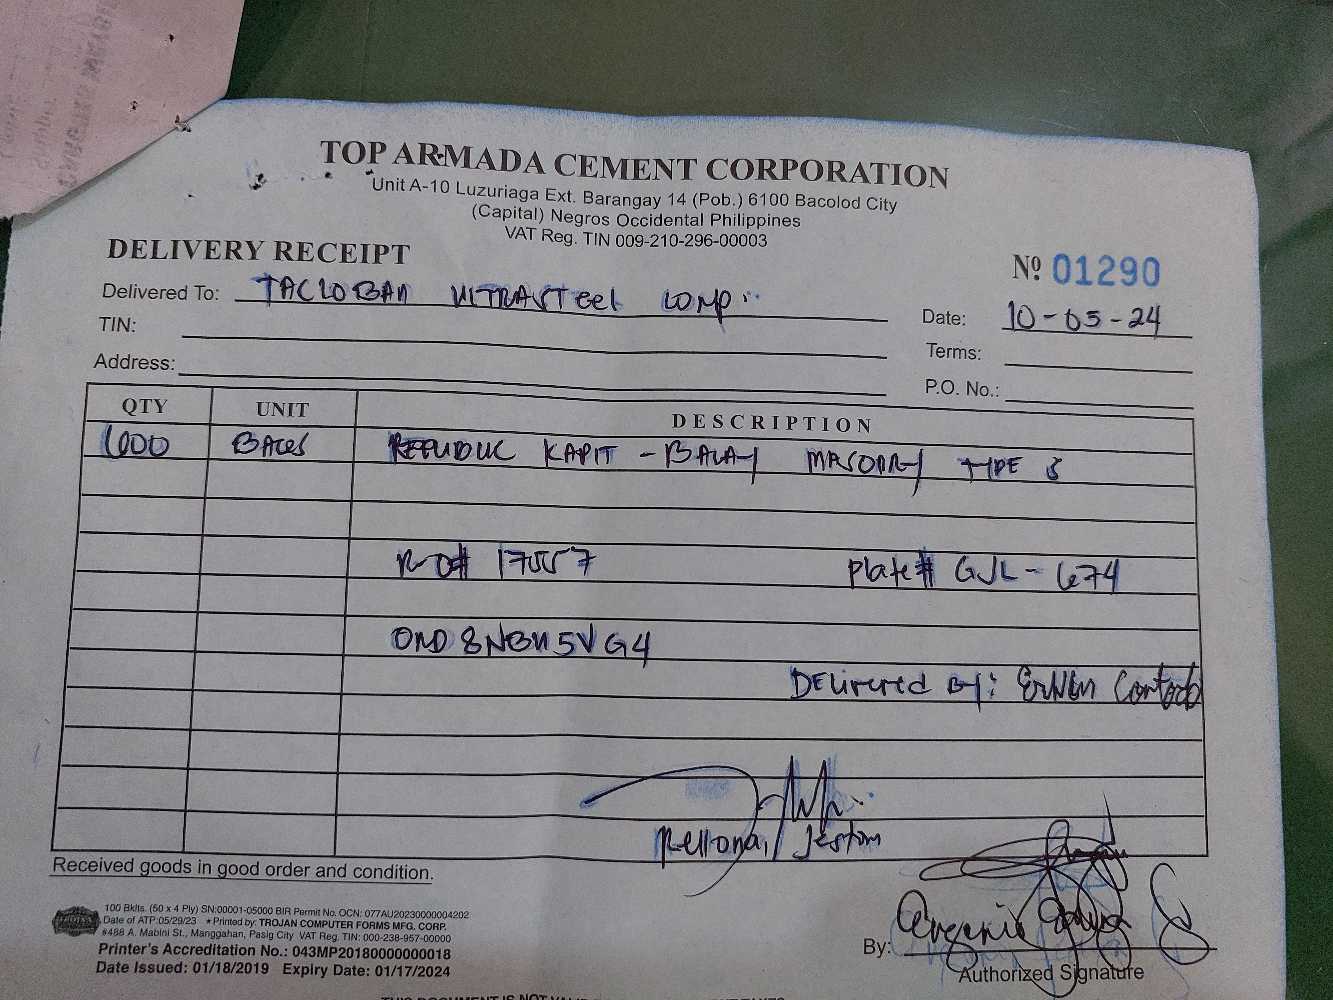 TOP ARMADA CEMENT CORPORATION
Unit A-10 Luzuriaga Ext. Barangay 14 (Pob.) 6100 Bacolod City
(Capital) Negros Occidental Philippines
VAT Reg. TIN 009-210-296-00003
DELIVERY RECEIPT
Nº 01290
Delivered To: TACLOBAN ULTRASTEEL CORP.
Date: 10-05-24
TIN:
Terms:
Address:
P.O. No.:
QTY UNIT DESCRIPTION
600 BAGS REPUBLIC KAPIT-BALAY MASONRY TYPE S
17557 Plate# GJL-674
ORD8NBU5VG4
DELivered By:
Jestom
Received goods in good order and condition.
100 Bklts. (50 x 4 Ply) SN:00001-05000 BIR Permit No. OCN: 077AU20230000004202
Date of ATP:05/29/23 * Printed by: TROJAN COMPUTER FORMS MFG. CORP.
#488 A. Mabini St., Manggahan, Pasig City VAT Reg. TIN: 000-238-957-00000
Printer's Accreditation No.: 043MP20180000000018
Date Issued: 01/18/2019 Expiry Date: 01/17/2024
By:
Authorized Signature